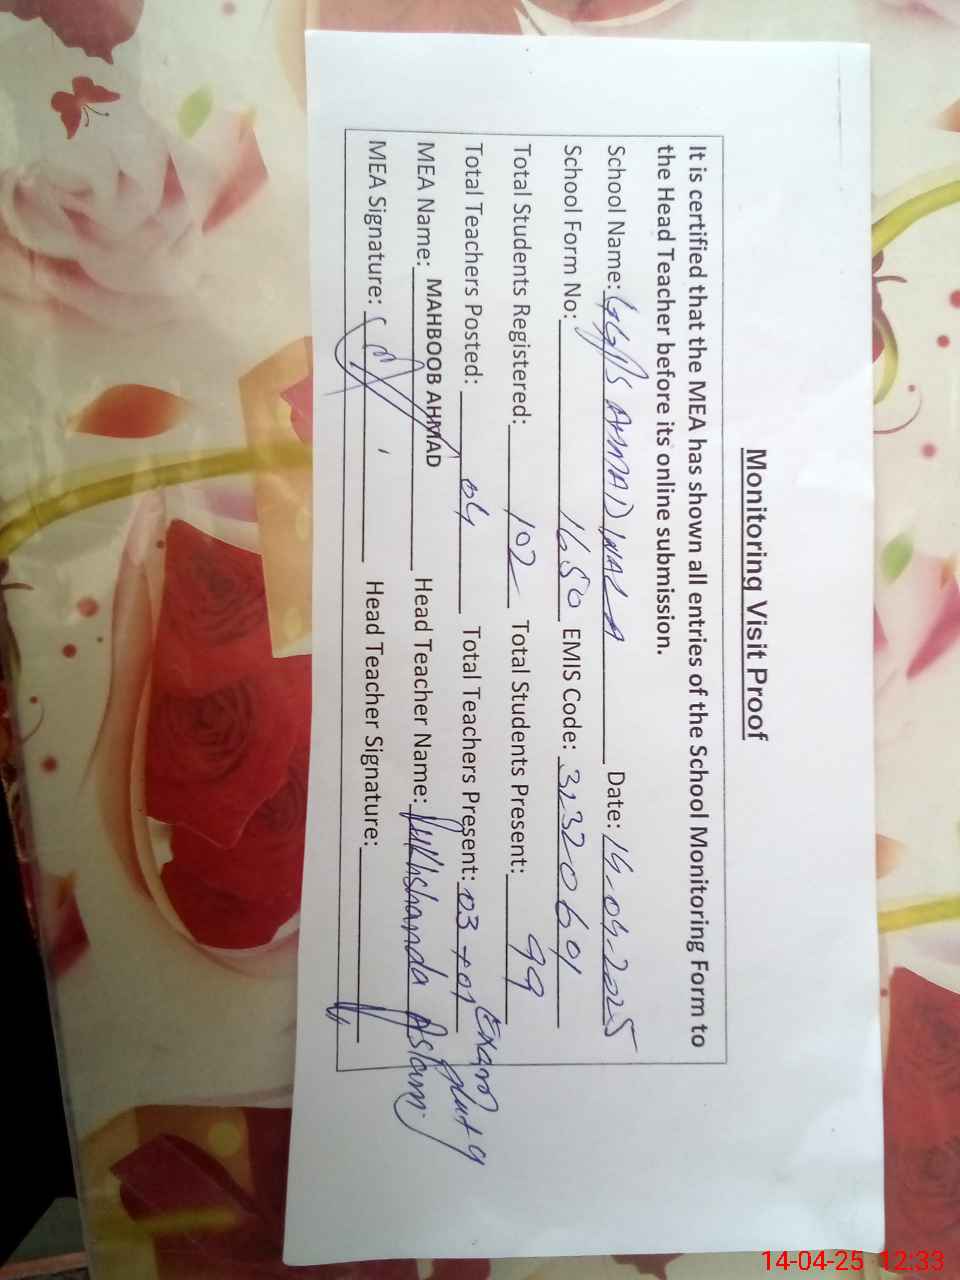 Monitoring Visit Proof
It is certified that the MEA has shown all entries of the School Monitoring Form to
the Head Teacher before its online submission.
School Name: GGPS AHMAD WALA Date: 14-04-2025
School Form No: 1650 EMIS Code: 31320601
Total Students Registered: 102 Total Students Present: 99
Total Teachers Posted: 04 Total Teachers Present: 03 +01 Exam
MEA Name: MAHBOOB AHMAD Head Teacher Name: Rukhshanda Aslam
MEA Signature: Head Teacher Signature:
14-04-25 12:33